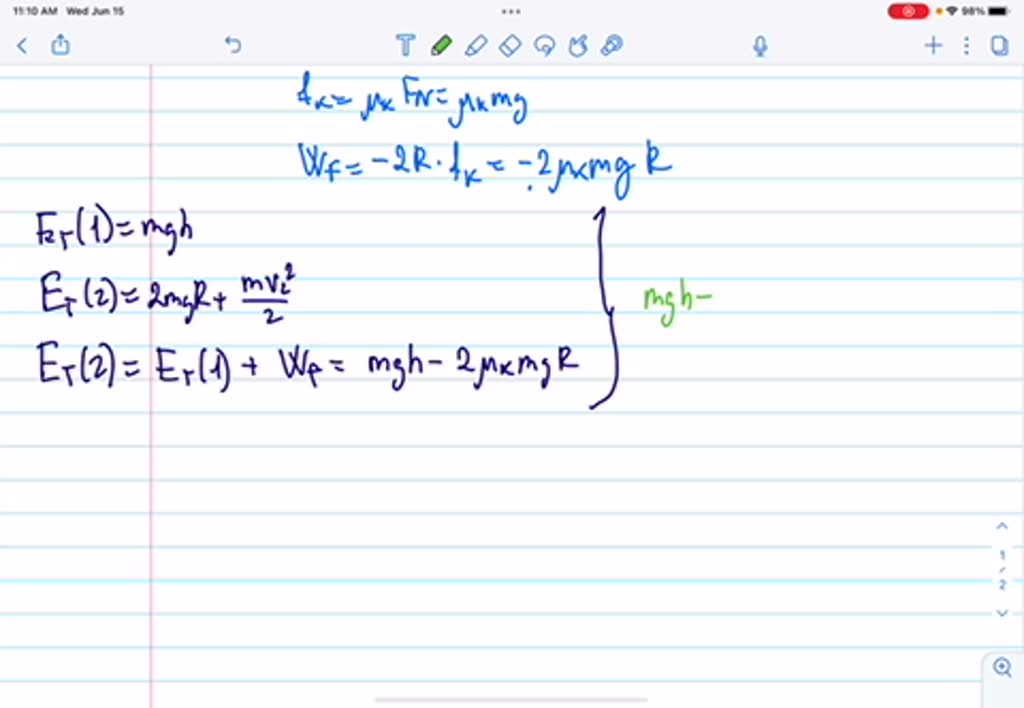 11:10 AM Wed Jun 15
98%
fₖ = μₖ FN = μₖmg
Wf = -2R · fₖ = -2μₖmg R
E_T(1) = mgh
E_T(2) = 2mgR + mv₂²/2
mgh-
E_T(2) = E_T(1) + Wf = mgh - 2μₖmgR
1
/
2